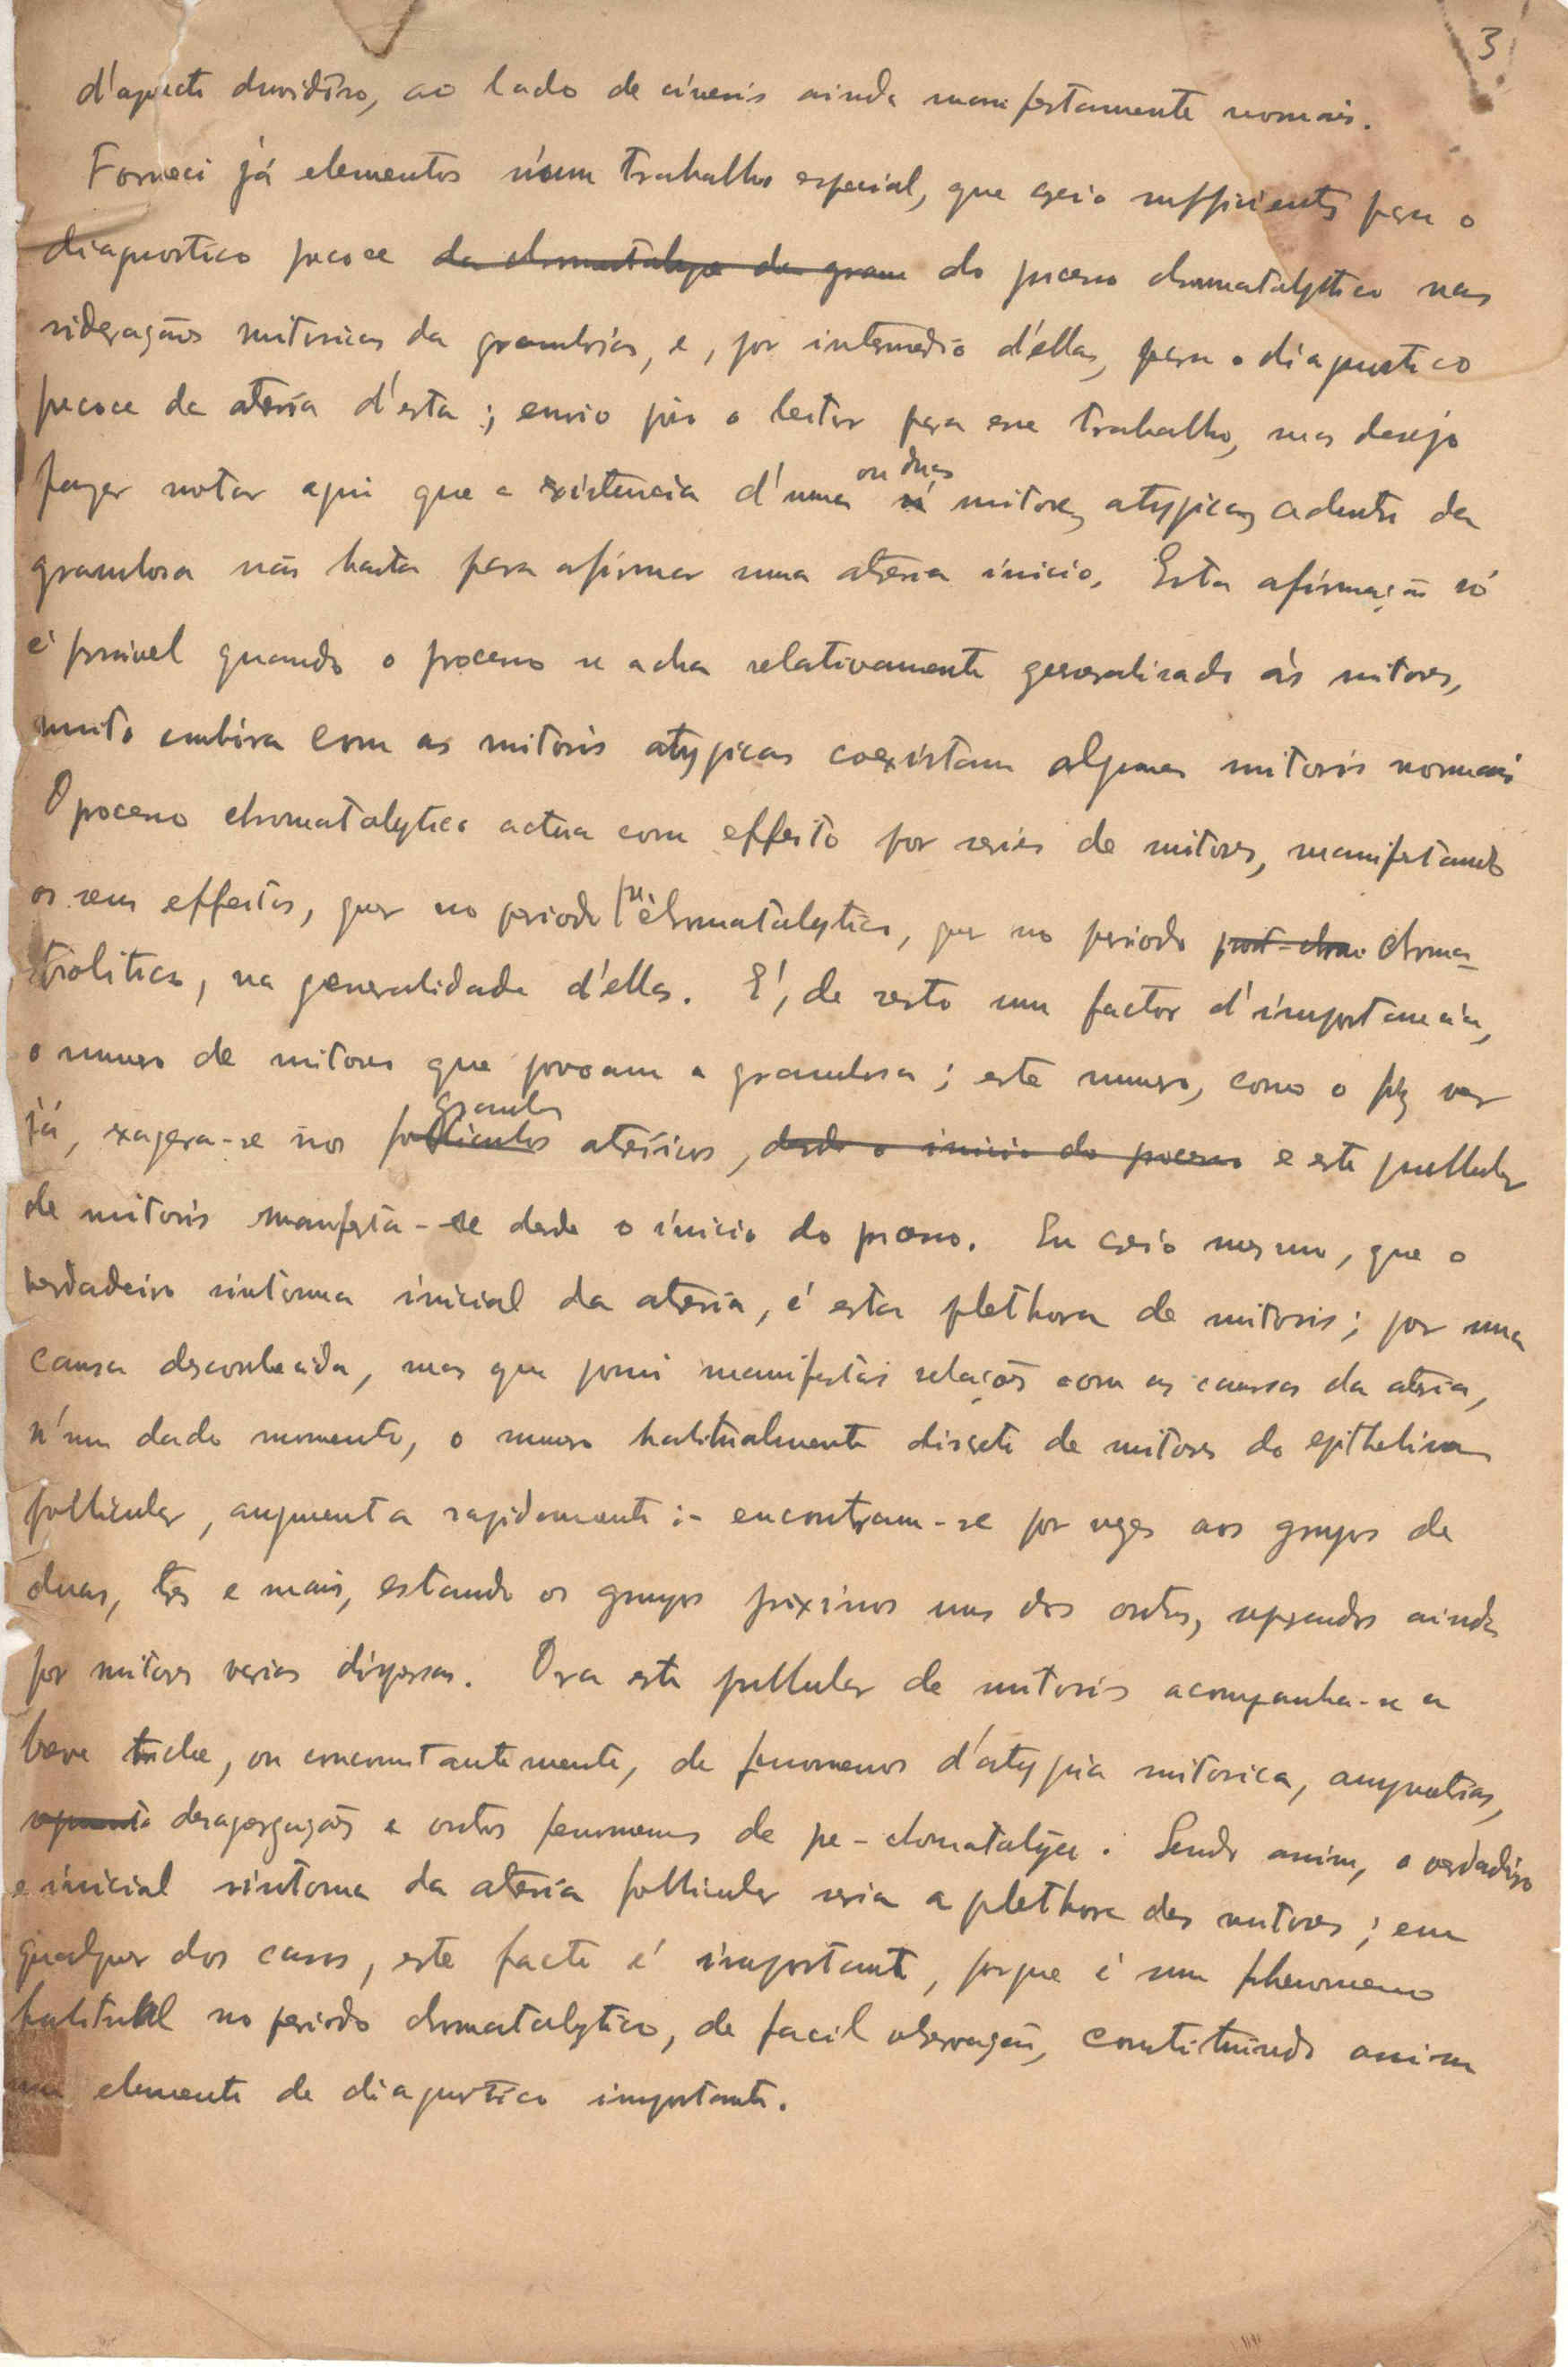 3
d'aspecto duvidoso, ao lado de cineses ainda manifestamente normais.
Forneci já elementos n'um trabalho especial, que creio sufficientes para o
diagnostico precoce da chromatolyse da gran do processo chromatolytico nas
siderações mitosicas da granulosa, e, por intermedio d'ellas, para o diagnostico
precoce da atresia d'esta; envio pois o leitor para esse trabalho, mas desejo
fazer notar aqui que a existencia d'uma ou duas mitoses atypicas adentro da
granulosa não basta para afirmar uma atresia inicio. Esta afirmação só
é possivel quando o processo se acha relativamente generalisado ás mitoses,
muito embora com as mitosis atypicas coexistam algumas mitosis normais
O processo chromatolytico actua com effeito por series de mitoses, manifestando
os seus effeitos, quer no periodo prechromatolytico, quer no periodo post-chro chroma-
trolitico, na generalidade d'ellas. E', de resto um factor d'importancia,
o numero de mitoses que povoam a granulosa; este numero, como o fiz ver
já, exagera-se nos folliculos grandes atrésicos, desde o inicio do processo e este pullular
de mitosis manifesta-se desde o inicio do processo. Eu creio mesmo, que o
verdadeiro sintoma inicial da atresia, é esta plethora de mitosis; por uma
causa desconhecida, mas que possui manifestas relações com as causas da atresia,
n'um dado momento, o numero habitualmente discreto de mitoses do epithelium
follicular, augmenta rapidamente :- encontram-se por vezes aos grupos de
duas, tres e mais, estando os grupos próximos uns dos outros, separados ainda
por mitoses varias dispersas. Ora este pullular de mitosis acompanha-se a
breve trecho, ou concomitantemente, de fenomenos d'atypia mitosica,
desagregações e outros fenomenos de pre-chromatolyse. Sendo assim, o verdadeiro
e inicial sintoma da atresia follicular seria a plethora das mitoses; em
qualquer dos casos, este facto é importante, porque é um phenomeno
habitual no periodo chromatolytico, de facil observação, constituindo assim
um elemento de diagnostico importante.